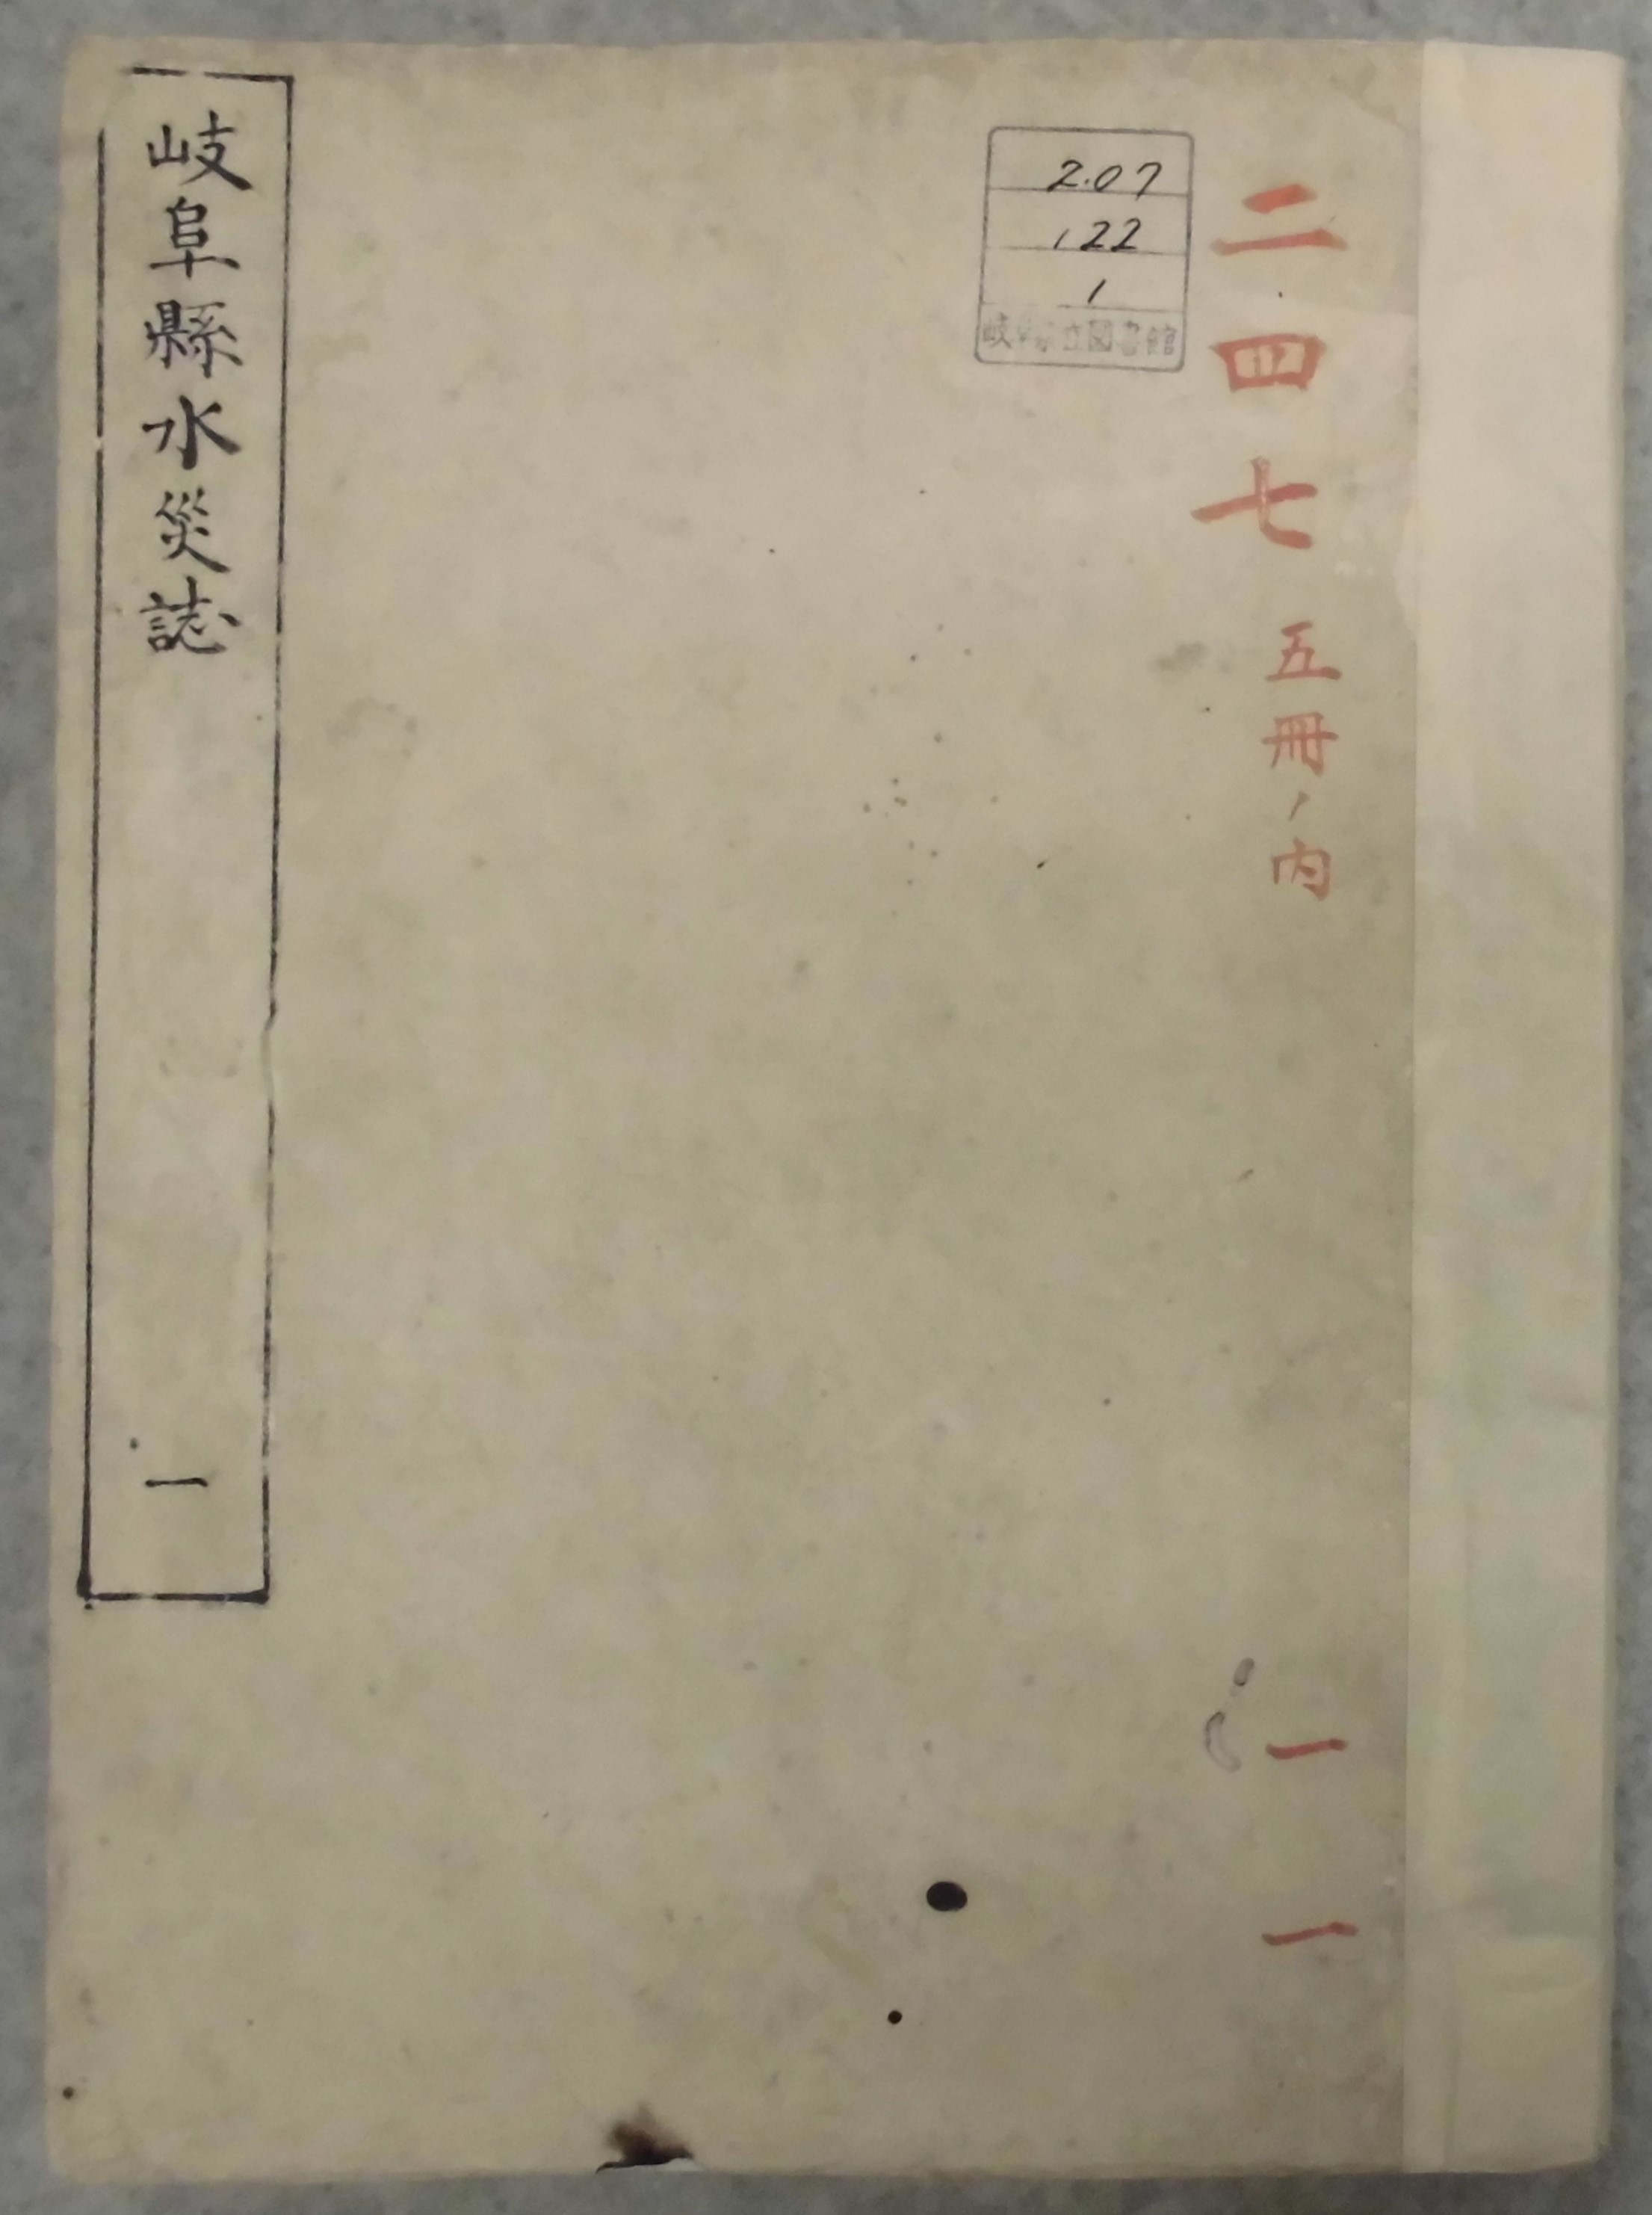 二四七 五冊ノ内
一
一
2.07
122
1
岐阜県立図書館
岐阜縣水災誌
一